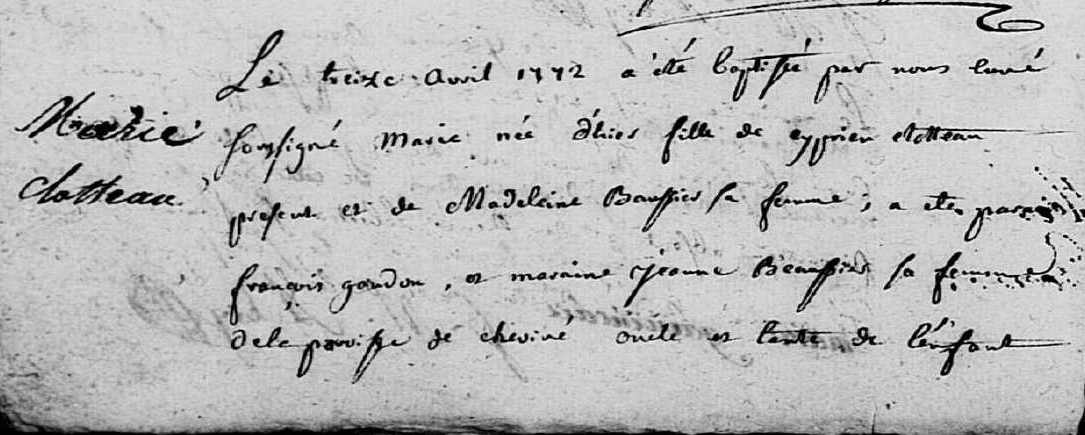 Marie
Clotteau
Le treize avril 1772 a été baptisée par nous curé
soussigné marie née d'hier fille de cyprien clotteau
present et de Madeleine Baussier sa femme ; a été parain
françois gandon, et maraine jeanne Beaussier sa femme
de la paroisse de cheviné oncle et tante de l'enfant